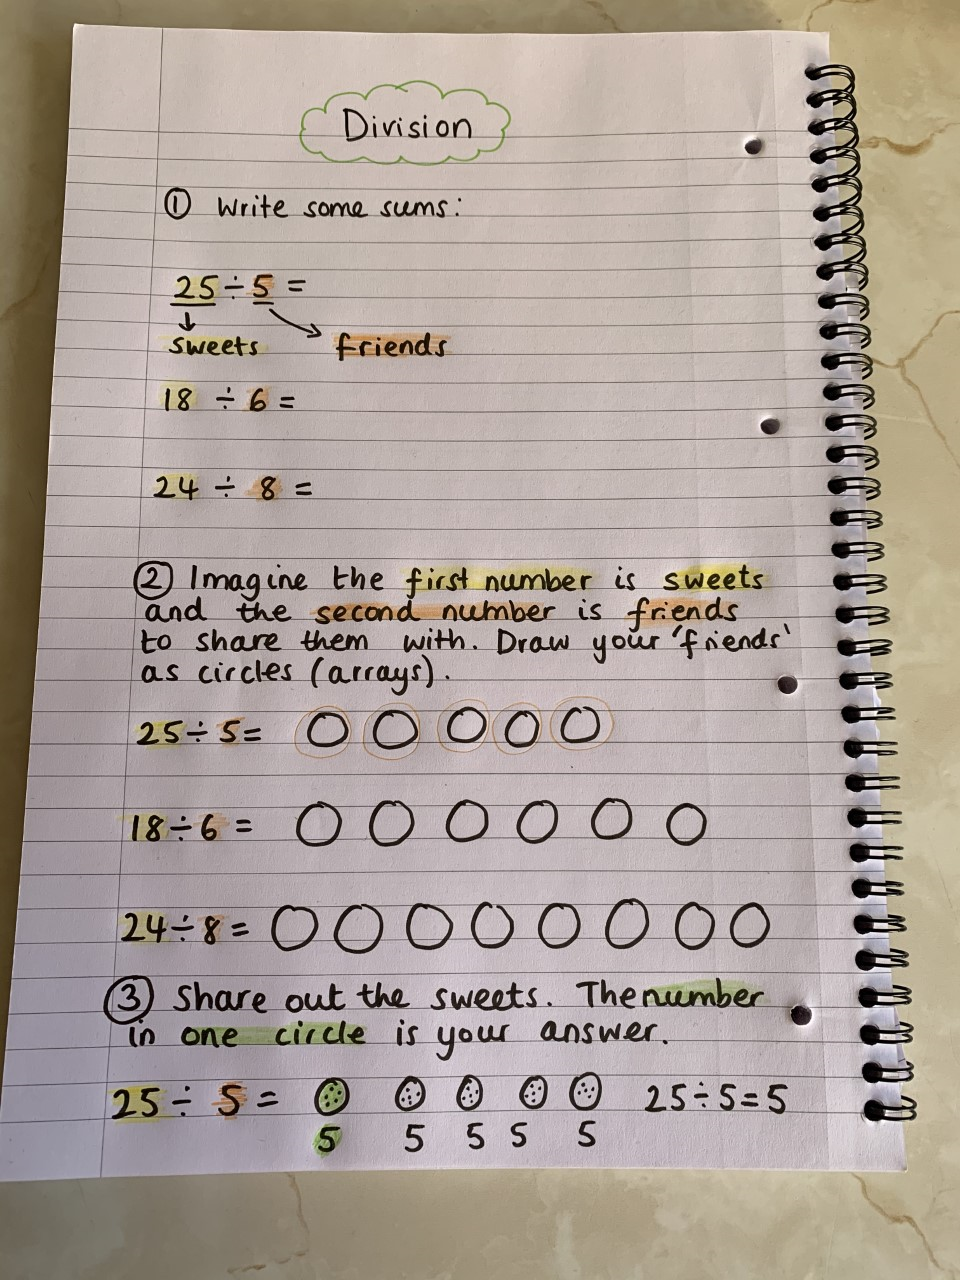 Division
① Write some sums:
25 ÷ 5 =
sweets friends
18 ÷ 6 =
24 ÷ 8 =
② Imagine the first number is sweets
and the second number is friends
to share them with. Draw your 'friends'
as circles (arrays).
25 ÷ 5 =
18 ÷ 6 =
24 ÷ 8 =
③ Share out the sweets. The number
in one circle is your answer.
25 ÷ 5 = 25 ÷ 5 = 5
5 5 5 5 5